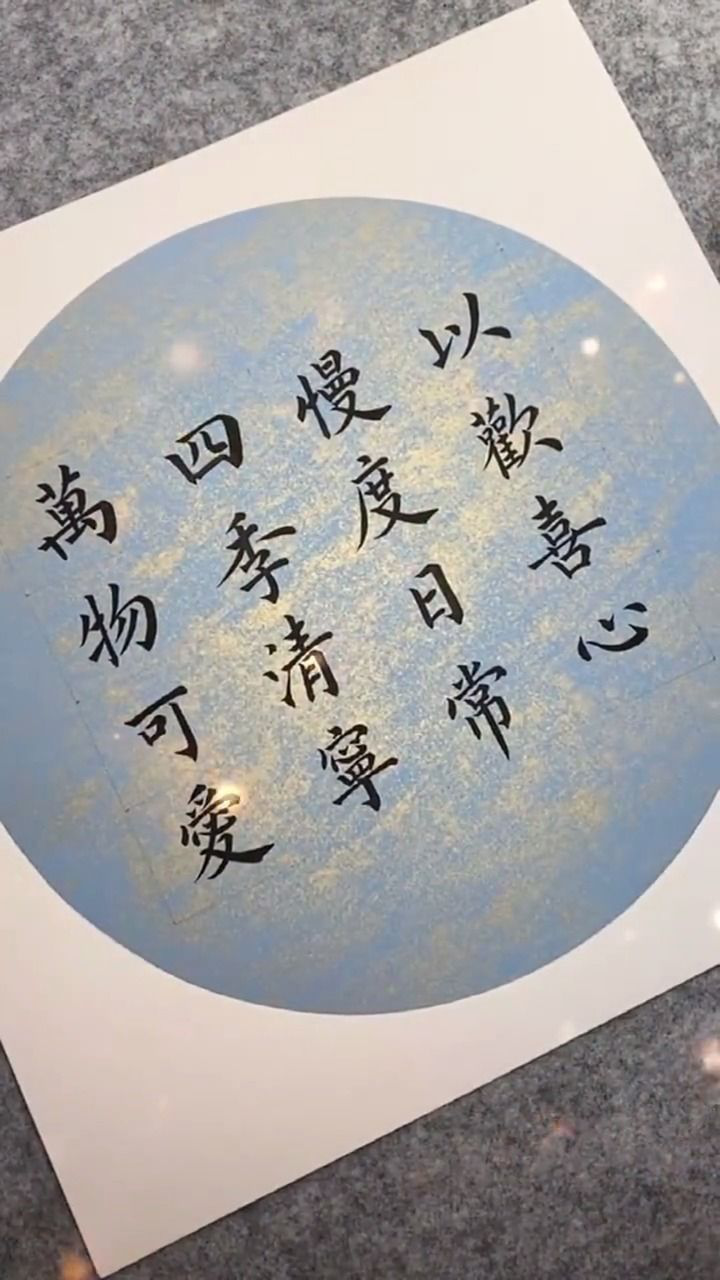 以歡喜心
慢度日常
四季清寧
萬物可愛